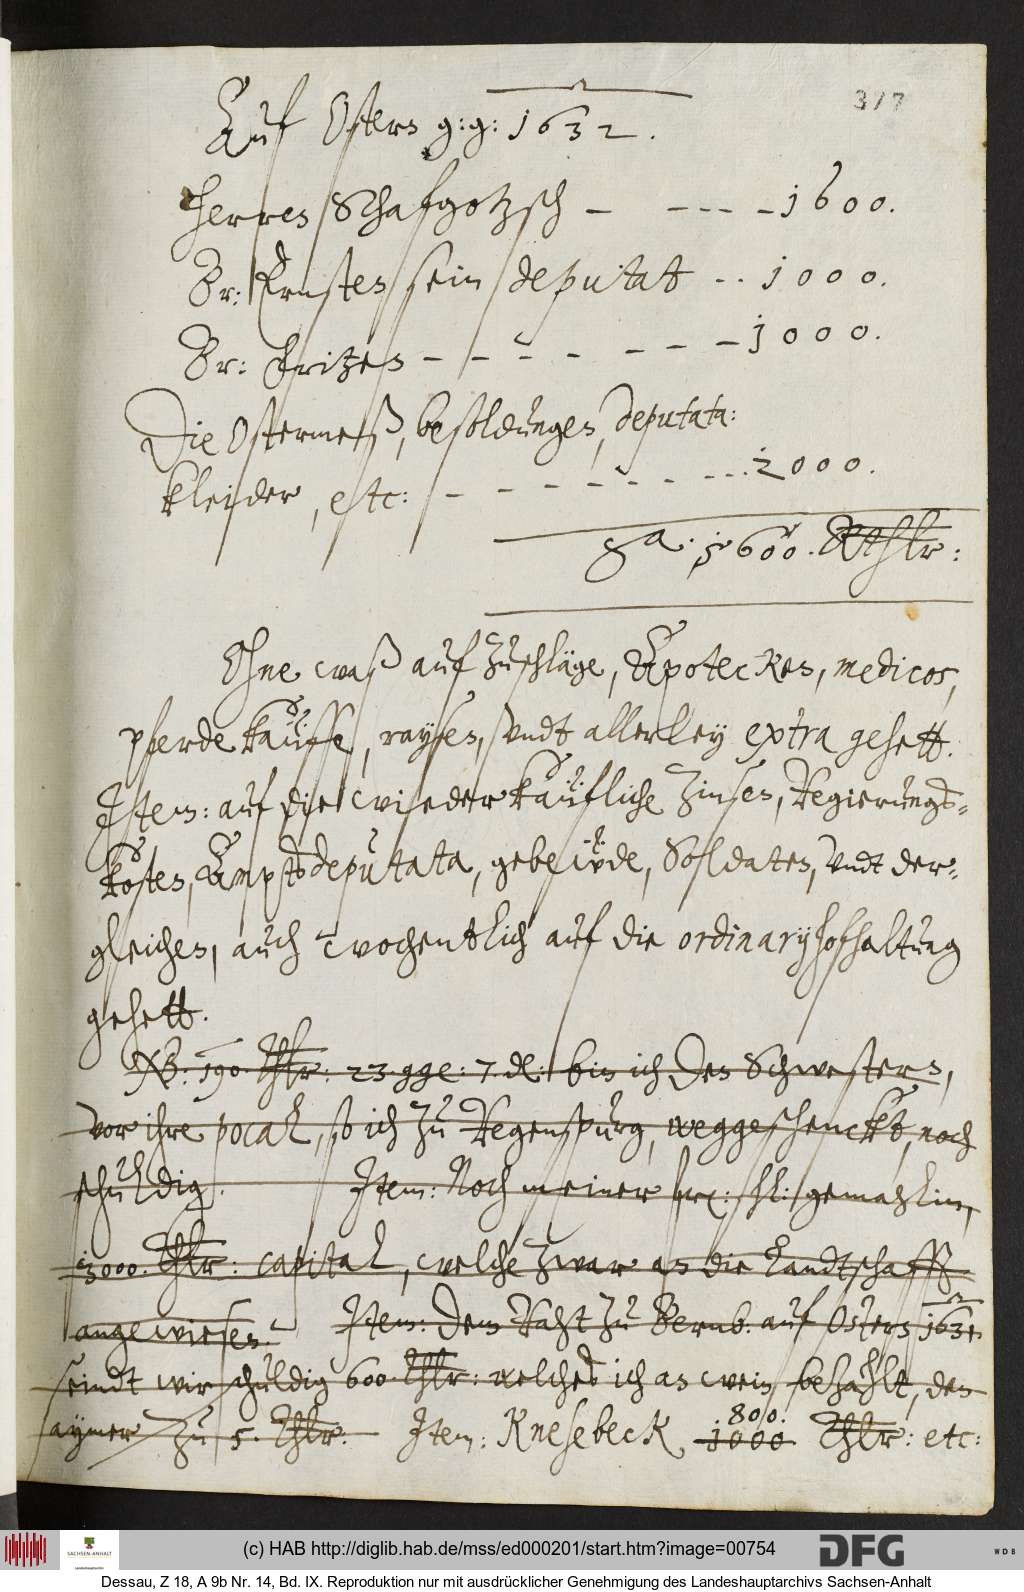 377
Auf Ostern g:g: 1632.
Herren Schafgotzsch – – - - – 1600.
Br: Ernsten sein deputat - - 1000.
Br: Fritzen – – – – – – – 1000.
Die Ostermeß, besoldungen, deputata:
kleider, etc: – – – – – – - - - 2000.
Sa. 5600. Rthlr:
Ohne waß auf zuschläge, Apotecken, medicos,
pferde kauffe, raysen, undt allerley extra gehett.
Item: auf die wiederkaüfliche Zinsen, Regierungs-
kosten, Ampts deputata, gebeüde, Soldaten, undt der-
gleichen, auch wochentlich auf die ordinarij hofhaltung
gehett.
NB: 190. Thlr: 23 gge: 7. d: bin ich den Schwestern,
vor ihre pocal, so ich zu Regenspurg, weggeschenckt, noch
schuldig. Item: Noch meiner hertz: gemahlin,
3000. Thlr: capital, welche zwar an die Landtschafft
angewiesen. Item: Dem Raht zu Bernb: auf Ostern 1631.
seindt wir schuldig 600 Thlr: welches ich an wein bezahlt, den
aymer zu 5. Thlr. Item: Knesebeck 1000 800. Thlr: etc:
(c) HAB http://diglib.hab.de/mss/ed000201/start.htm?image=00754
SACHSEN-ANHALT
DFG
WDB
Dessau, Z 18, A 9b Nr. 14, Bd. IX. Reproduktion nur mit ausdrücklicher Genehmigung des Landeshauptarchivs Sachsen-Anhalt